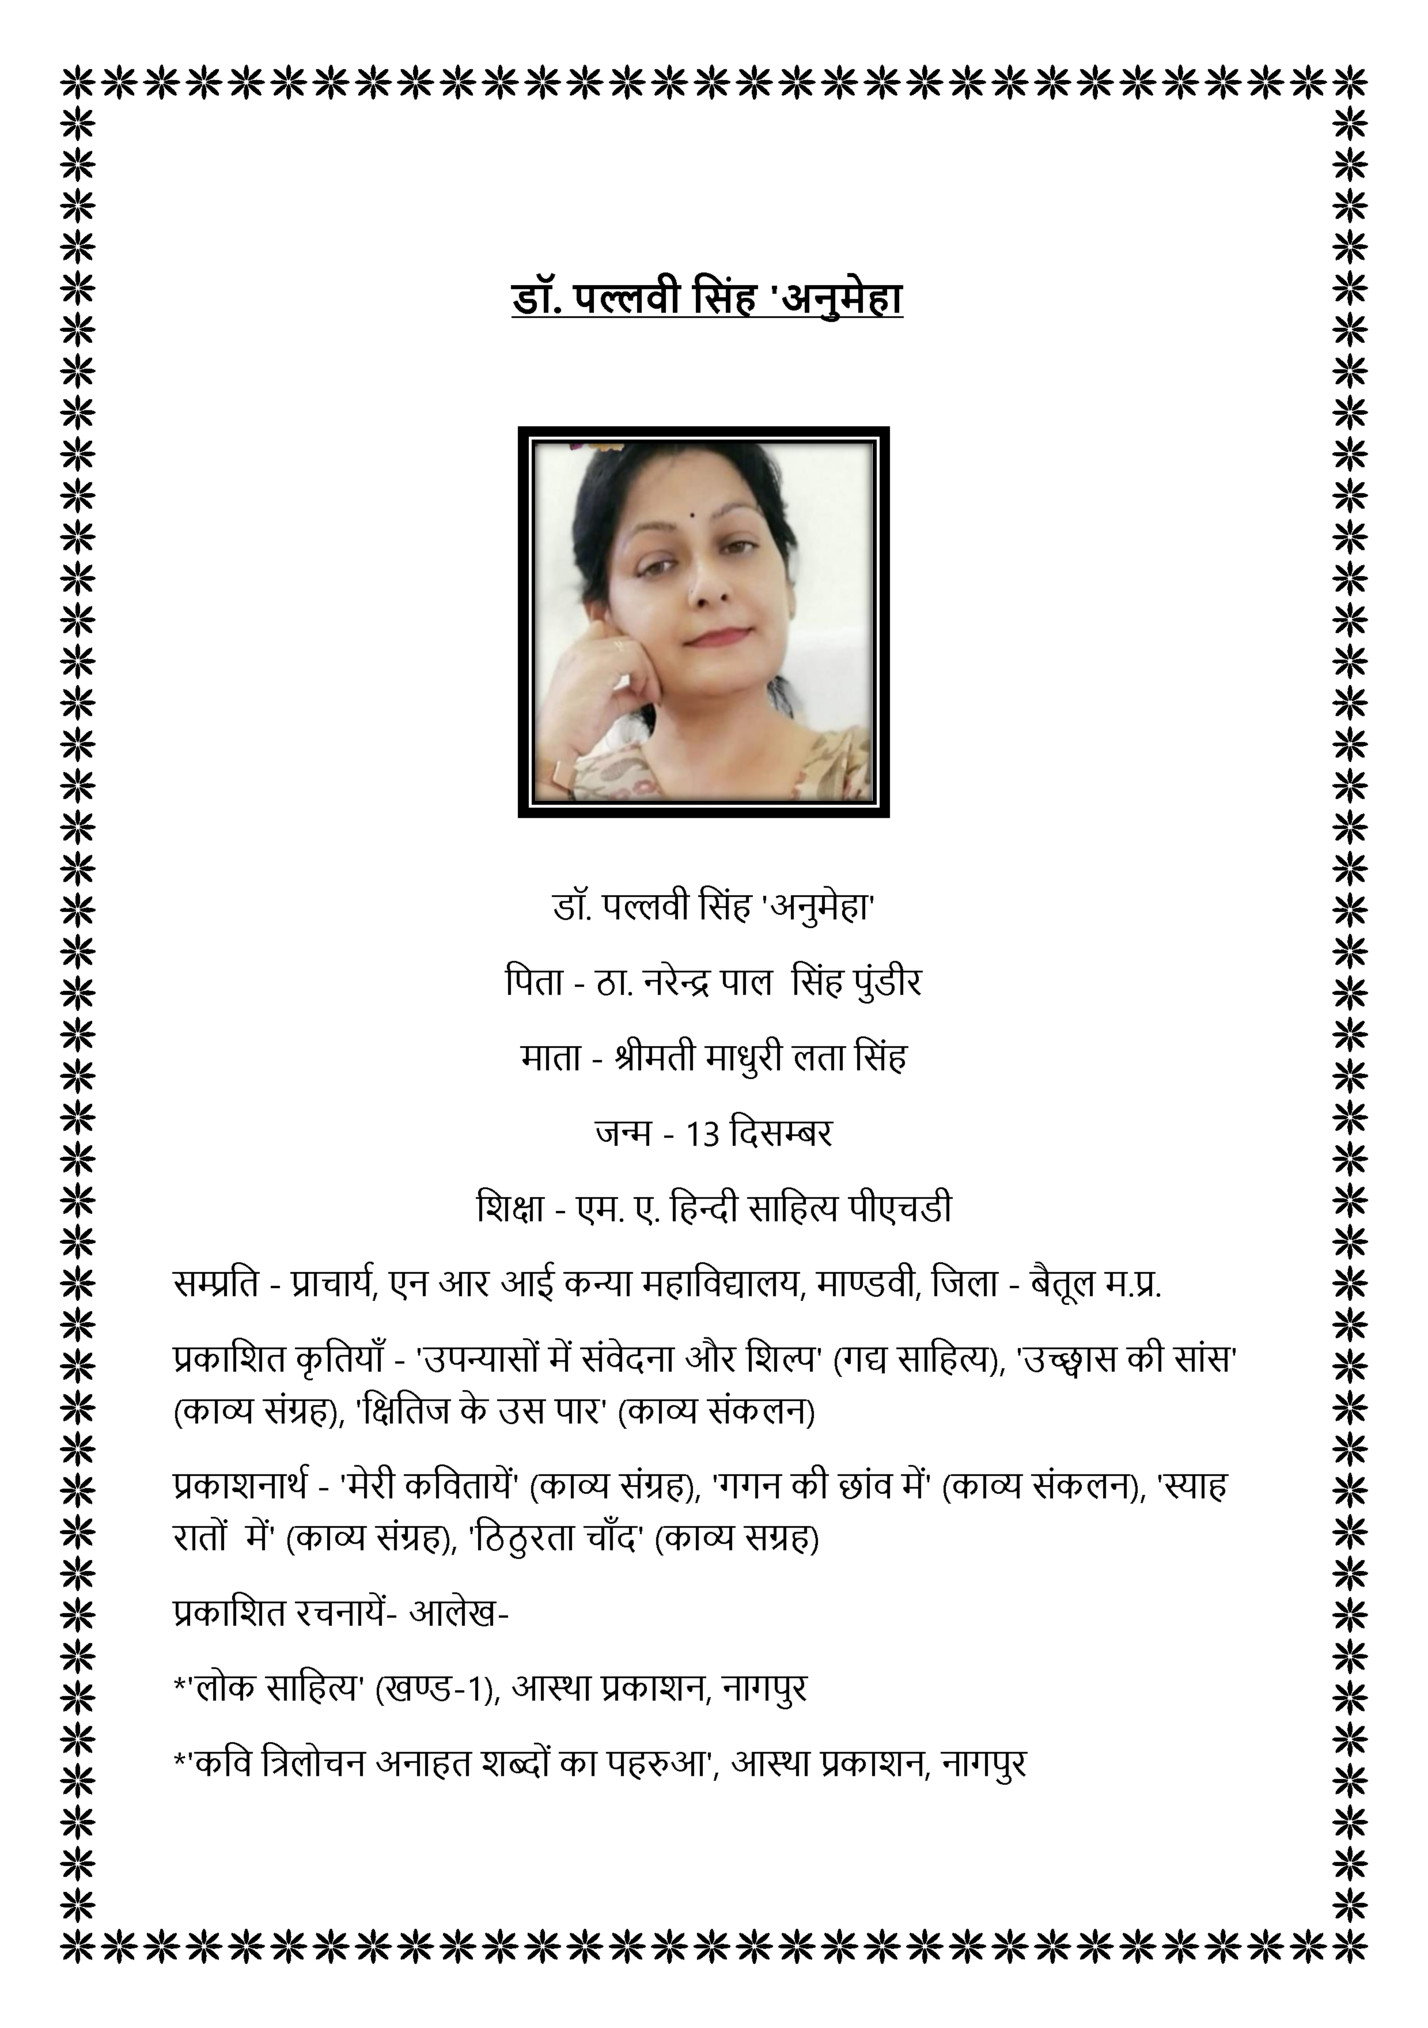 डॉ. पल्लवी सिंह 'अनुमेहा
डॉ. पल्लवी सिंह 'अनुमेहा'
पिता - ठा. नरेन्द्र पाल  सिंह पुंडीर
माता - श्रीमती माधुरी लता सिंह
जन्म - 13 दिसम्बर
शिक्षा - एम. ए. हिन्दी साहित्य पीएचडी
सम्प्रति - प्राचार्य, एन आर आई कन्या महाविद्यालय, माण्डवी, जिला - बैतूल म.प्र.
प्रकाशित कृतियाँ - 'उपन्यासों में संवेदना और शिल्प' (गद्य साहित्य), 'उच्छ्वास की सांस'
(काव्य संग्रह), 'क्षितिज के उस पार' (काव्य संकलन)
प्रकाशनार्थ - 'मेरी कवितायें' (काव्य संग्रह), 'गगन की छांव में' (काव्य संकलन), 'स्याह
रातों  में' (काव्य संग्रह), 'ठिठुरता चाँद' (काव्य सग्रह)
प्रकाशित रचनायें- आलेख-
*'लोक साहित्य' (खण्ड-1), आस्था प्रकाशन, नागपुर
*'कवि त्रिलोचन अनाहत शब्दों का पहरुआ', आस्था प्रकाशन, नागपुर